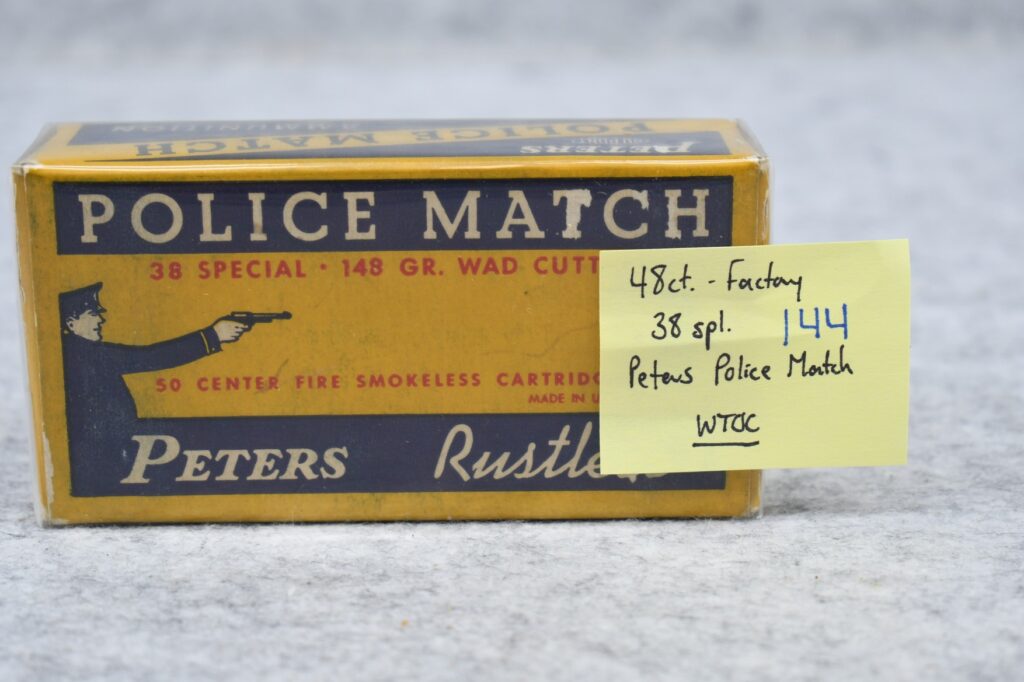 POLICE MATCH
AMMUNITION
PETERS
POLICE MATCH
38 SPECIAL · 148 GR. WAD CUTT
50 CENTER FIRE SMOKELESS CARTRIDG
MADE IN U
PETERS Rustle
48ct. - Factory
38 spl. 144
Peters Police Match